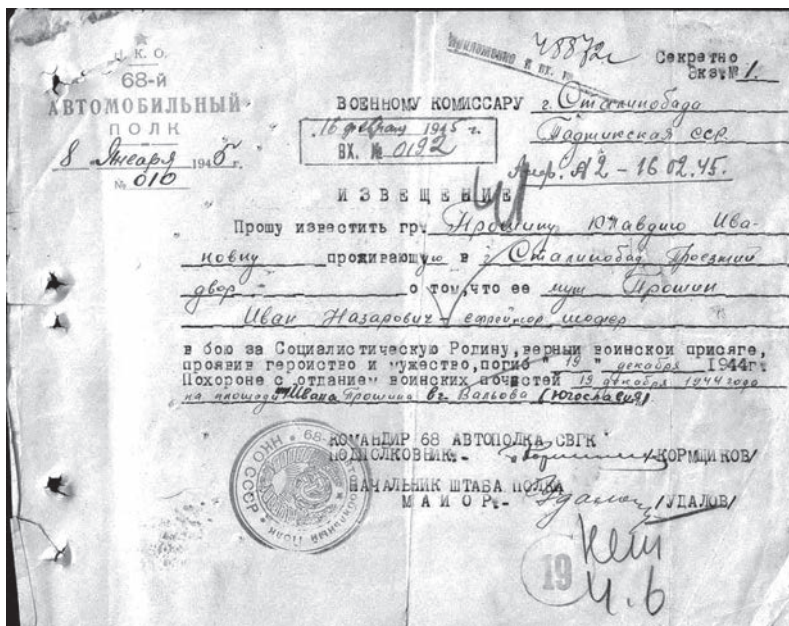 Н.К.О.
68-й
АВТОМОБИЛЬНЫЙ
ПОЛК
8 Января 1945 г.
№ 010
48872
Секретно
Экз.№ 1.
ВОЕННОМУ КОМИССАРУ г. Сталинобада
Таджикская ССР
16 февраля 1945 г.
ВХ. № 0192
А2 - 16.02.45.
ИЗВЕЩЕНИЕ
Прошу известить гр. Прошину Клавдию Ива-
новну проживающую в г Сталинобад Проезжий
двор о том,что ее муж Прошин
Иван Назарович - ефрейтор шофер
в бою за Социалистическую Родину,верный воинской присяге,
проявив геройство и мужество,погиб "19" декабря 1944г.
Похоронен с отданием воинских почестей 19 декабря 1944 года
на площади Ивана Прошина в г. Вальова (Югославия)
КОМАНДИР 68 АВТОПОЛКА СВГК
ПОДПОЛКОВНИК:- /КОРМЩИКОВ/
НАЧАЛЬНИК ШТАБА ПОЛКА
МАЙОР:- /УДАЛОВ/
НКО СССР
68-й Автомобильный Полк
19